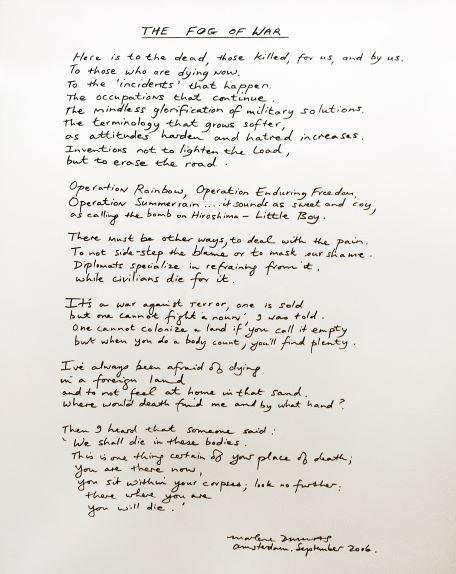 THE FOG OF WAR
Here is to the dead, those killed, for us, and by us.
To those who are dying now.
To the 'incidents' that happen.
The occupations that continue.
The mindless glorification of military solutions.
The terminology that grows softer,
as attitudes harden and hatred increases.
Inventions not to lighten the load,
but to erase the road.
Operation Rainbow, Operation Enduring Freedom,
Operation Summerrain .... it sounds as sweet and coy,
as calling the bomb on Hiroshima – Little Boy.
There must be other ways, to deal with the pain.
To not side-step the blame or to mask our shame.
Diplomats specialize in refraining from it.
while civilians die for it.
It's a war against Terror, one is sold
but one cannot fight a noun, I was told.
One cannot colonize a land if you call it empty
but when you do a body count, you'll find plenty.
I've always been afraid of dying
in a foreign land
and to not feel at home in that sand.
Where would death find me and by what hand?
Then I heard that someone said:
'We shall die in these bodies.
This is one thing certain of your place of death;
you are there now,
you sit within your corpses; look no further;
there where you are
you will die.'
Marlene Dumas
Amsterdam. September 2006.